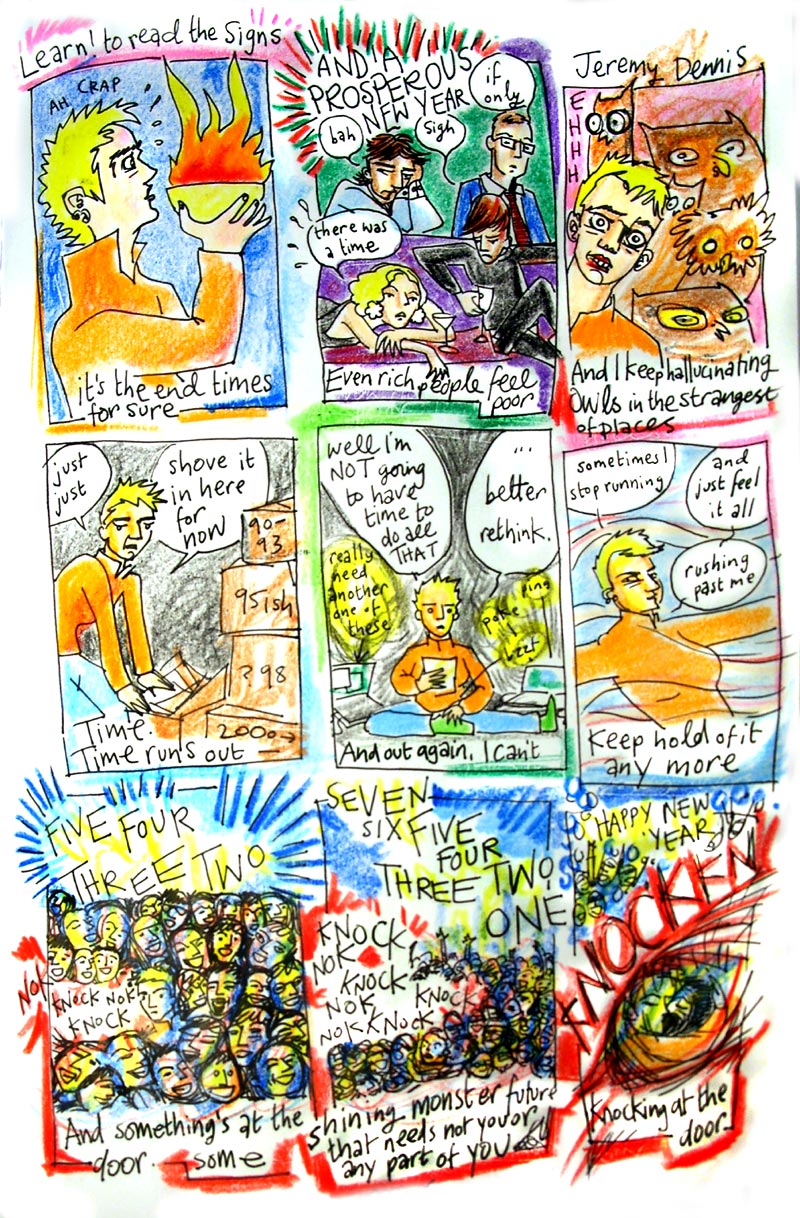 Learn! to read the Signs
Jeremy Dennis
AH CRAP
it's the end times
for sure
AND A
PROSPEROUS
NEW YEAR
if
only
bah
sigh
there was
a time
Even rich people feel
poor
EHHH
And I keep hallucinating
Owls in the strangest
of places
just
just
shove it
in here
for
now
90-
93
95ish
?98
2000→
Time.
Time run's out
well I'm
NOT going
to have
time to
do all
THAT
...
better
rethink.
really
need
another
one of
these
ping
poke
bzzt
And out again, I can't
sometimes I
stop running
and
just feel
it all
rushing
past me
Keep hold of it
any more
FIVE FOUR
THREE TWO
NOK
KNOCK NOK
KNOCK
And something's at the
door. some
SEVEN
SIX FIVE
FOUR
THREE TWO
ONE
KNOCK
NOK
KNOCK
NOK
KNOCK
NOK KNOCK
shining monster future
that needs not you or
any part of you
HAPPY NEW
YEAR
KNOCKKN
Knocking at the
door